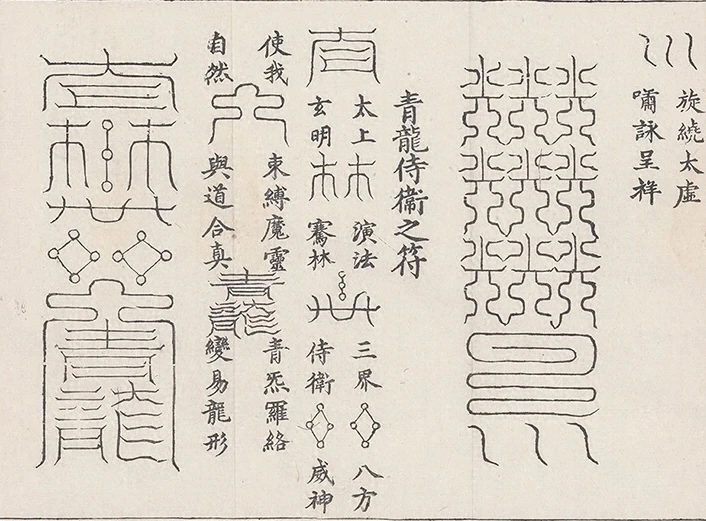 旋繞太虛
嘯詠呈祥
青龍侍衛之符
太上
玄明
演法
騫林
三界
侍衛
八方
威神
使我
自然
束縛魔靈
與道合真
青龍
青炁羅絡
變易龍形
青龍